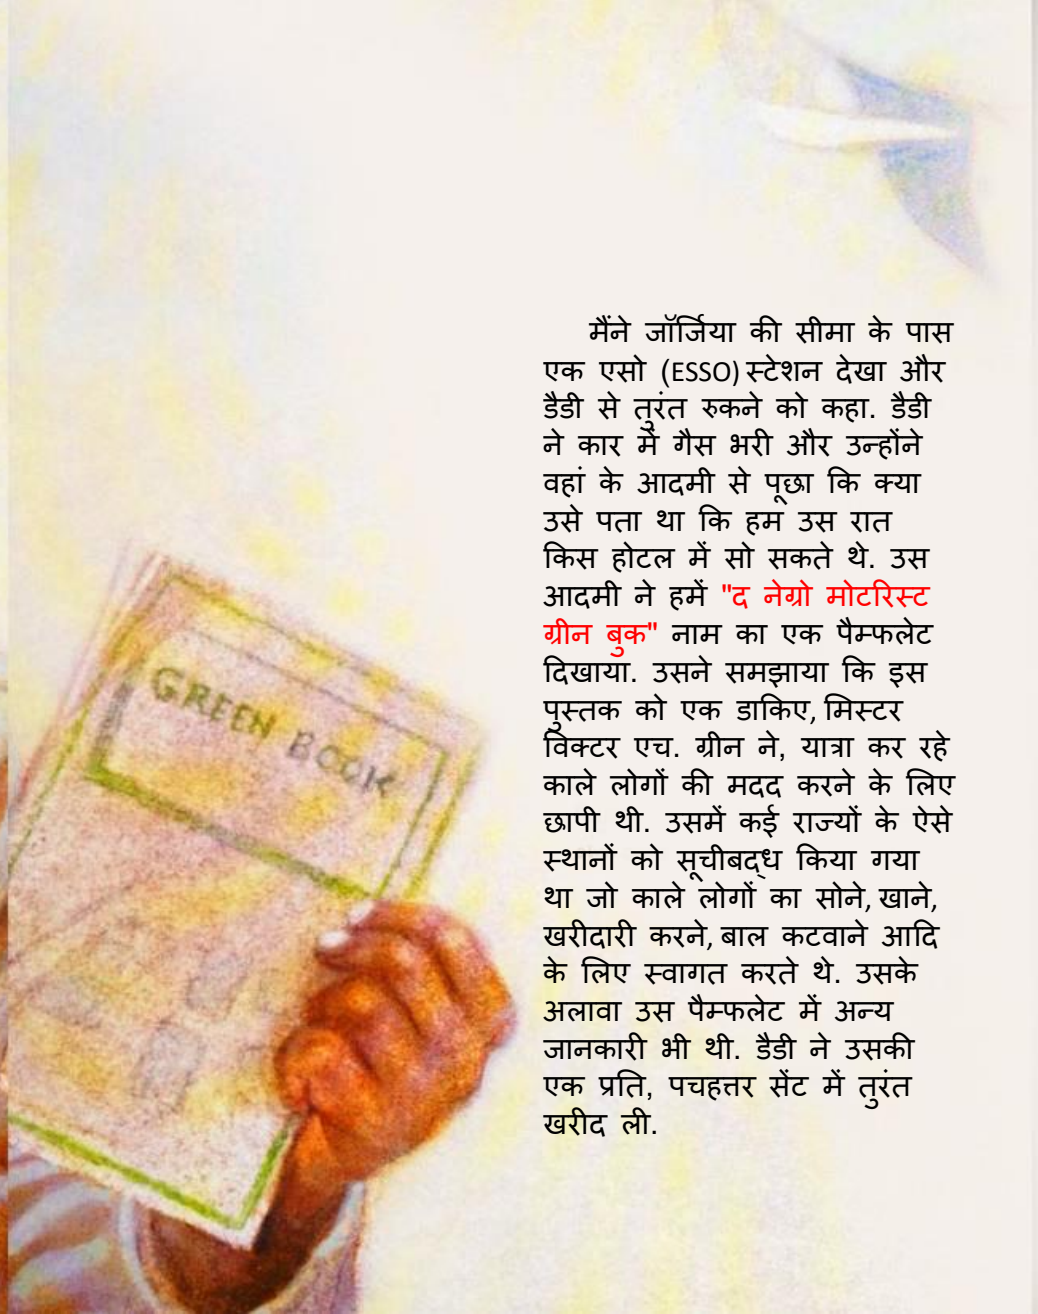 GREEN BOOK
मैंने जॉर्जिया की सीमा के पास
एक एसो (ESSO) स्टेशन देखा और
डैडी से तुरंत रुकने को कहा. डैडी
ने कार में गैस भरी और उन्होंने
वहां के आदमी से पूछा कि क्या
उसे पता था कि हम उस रात
किस होटल में सो सकते थे. उस
आदमी ने हमें "द नेग्रो मोटरिस्ट
ग्रीन बुक" नाम का एक पैम्फलेट
दिखाया. उसने समझाया कि इस
पुस्तक को एक डाकिए, मिस्टर
विक्टर एच. ग्रीन ने, यात्रा कर रहे
काले लोगों की मदद करने के लिए
छापी थी. उसमें कई राज्यों के ऐसे
स्थानों को सूचीबद्ध किया गया
था जो काले लोगों का सोने, खाने,
खरीदारी करने, बाल कटवाने आदि
के लिए स्वागत करते थे. उसके
अलावा उस पैम्फलेट में अन्य
जानकारी भी थी. डैडी ने उसकी
एक प्रति, पचहत्तर सेंट में तुरंत
खरीद ली.